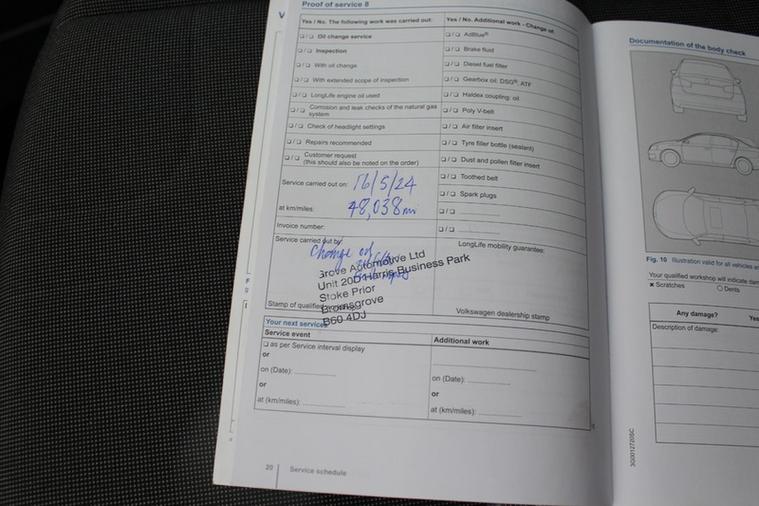 Proof of service 8
Yes / No. The following work was carried out:
❑ / ❑ Oil change service
❑ / ❑ Inspection
❑ / ❑ With oil change
❑ / ❑ With extended scope of inspection
❑ / ❑ LongLife engine oil used
❑ / ❑ Corrosion and leak checks of the natural gas
system
❑ / ❑ Check of headlight settings
❑ / ❑ Repairs recommended
❑ / ❑ Customer request
(this should also be noted on the order)
Service carried out on: 16/5/24
at km/miles: 48,038mi
Invoice number:
Service carried out by:
Change of
Grove Automotive Ltd
Unit 20D Harris Business Park
Stoke Prior
Bromsgrove
B60 4DJ
Stamp of qualified
Yes / No. Additional work - Change of:
❑ / ❑ AdBlue®
❑ / ❑ Brake fluid
❑ / ❑ Diesel fuel filter
❑ / ❑ Gearbox oil: DSG®, ATF
❑ / ❑ Haldex coupling: oil
❑ / ❑ Poly V-belt
❑ / ❑ Air filter insert
❑ / ❑ Tyre filler bottle (sealant)
❑ / ❑ Dust and pollen filter insert
❑ / ❑ Toothed belt
❑ / ❑ Spark plugs
❑ / ❑
❑ / ❑
LongLife mobility guarantee:
Volkswagen dealership stamp
Your next service
Service event
❑ as per Service interval display
or
on (Date):
or
at (km/miles):
Additional work
on (Date):
or
at (km/miles):
20 Service schedule
Documentation of the body check
Fig. 10 Illustration valid for all vehicles
Your qualified workshop will indicate
× Scratches
○ Dents
Any damage?
Yes
Description of damage:
3G0012720SC